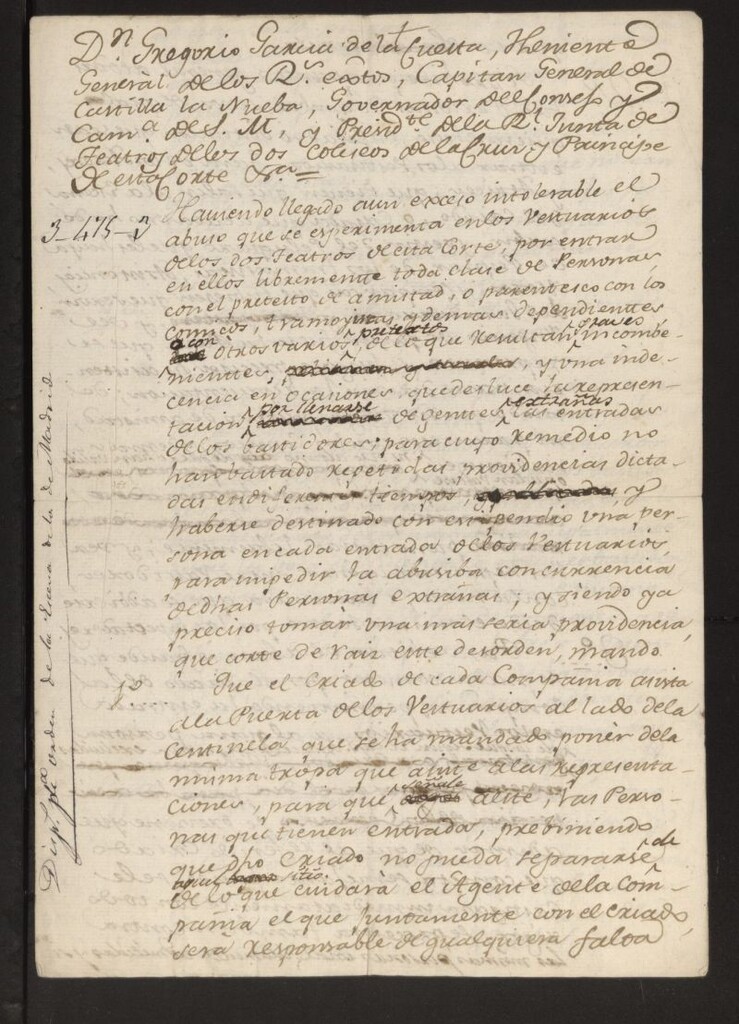 Dn. Gregorio Garcia de la Cuesta, Theniente
General de los Rs. extos, Capitan General de
Castilla la Nueba, Governador del Consejo y
Camª de S. M, y Presidte de la Rl. Junta de
Teatros de los dos Coliseos de la Cruz y Principe
de esta Corte &ra =
3-475-3
Haviendo llegado a un exceso intolerable el
abuso que se experimenta en los Vestuarios
de los dos Teatros de esta Corte, por entrar
en ellos libremente toda clase de Personas
con el pretexto de amistad, o parentesco con los
Comicos, tramoyistas, y demas dependientes,
o con otros varios pretextos, de lo que resultan graves incombe-
nientes, y una inde-
cencia en ocasiones, que desluce la represen-
tacion por llenarse de gentes extrañas las entradas
de los bastidores; para cuyo remedio no
han bastado repetidas providencias dicta-
das en diferentes tiempos, y
haberse destinado con estipendio una Per-
sona en cada entrada de los Vestuarios,
para impedir la abusiba concurrencia
de dhas Personas extrañas; y siendo ya
preciso tomar una mas seria providencia,
que corte de raiz este desorden, mando
1º Que el Criado de cada Compañia asista
a la Puerta de los Vestuarios al lado de la
Centinela que se ha mandado poner de la
misma tropa que asiste a las representa-
ciones, para que señale a este, las Perso-
nas que tienen entrada, prebiniendo
que dho Criado no pueda separarse de
aquel sitio.
de lo que cuidarà el Agente de la Com-
pañia el que juntamente con el Criado,
serà responsable de qualquiera falta
Disp. pª orden de la Escena de la de Madrid